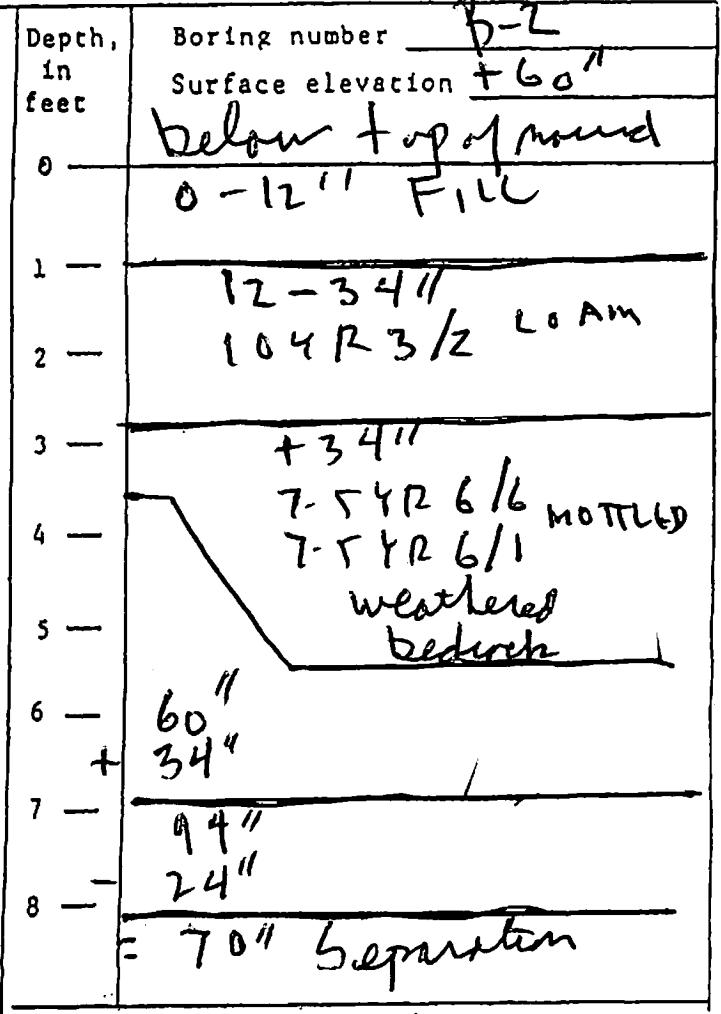 Depth, in feet
Boring number B-2
Surface elevation +60"
below top of mound
0
0-12" FILL
1
12-34"
10YR 3/2 LOAM
2
3
+34"
7.5YR 6/6 MOTTLED
4
7.5YR 6/1
weathered
5
bedrock
6
60"
+ 34"
7
94"
- 24"
8
= 70" Separation